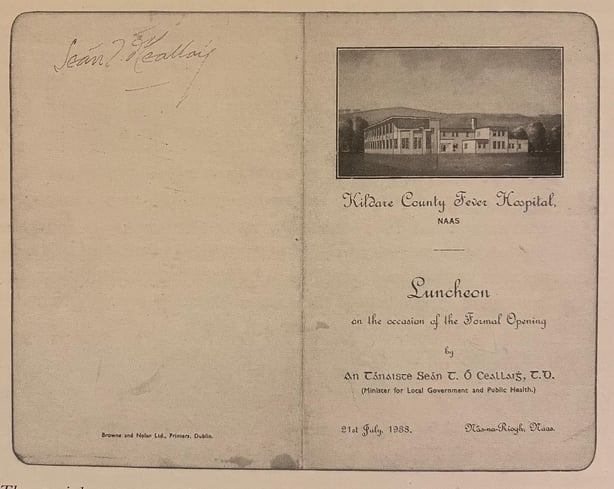 Seán T. Ó Ceallaigh
Browne and Nolan Ltd., Printers, Dublin.
Kildare County Fever Hospital,
NAAS
Luncheon
on the occasion of the Formal Opening
by
An Tánaiste Seán T. Ó Ceallaiġ, T.D.
(Minister for Local Government and Public Health.)
21st July, 1938.
Nás-na-Ríogh, Naas.